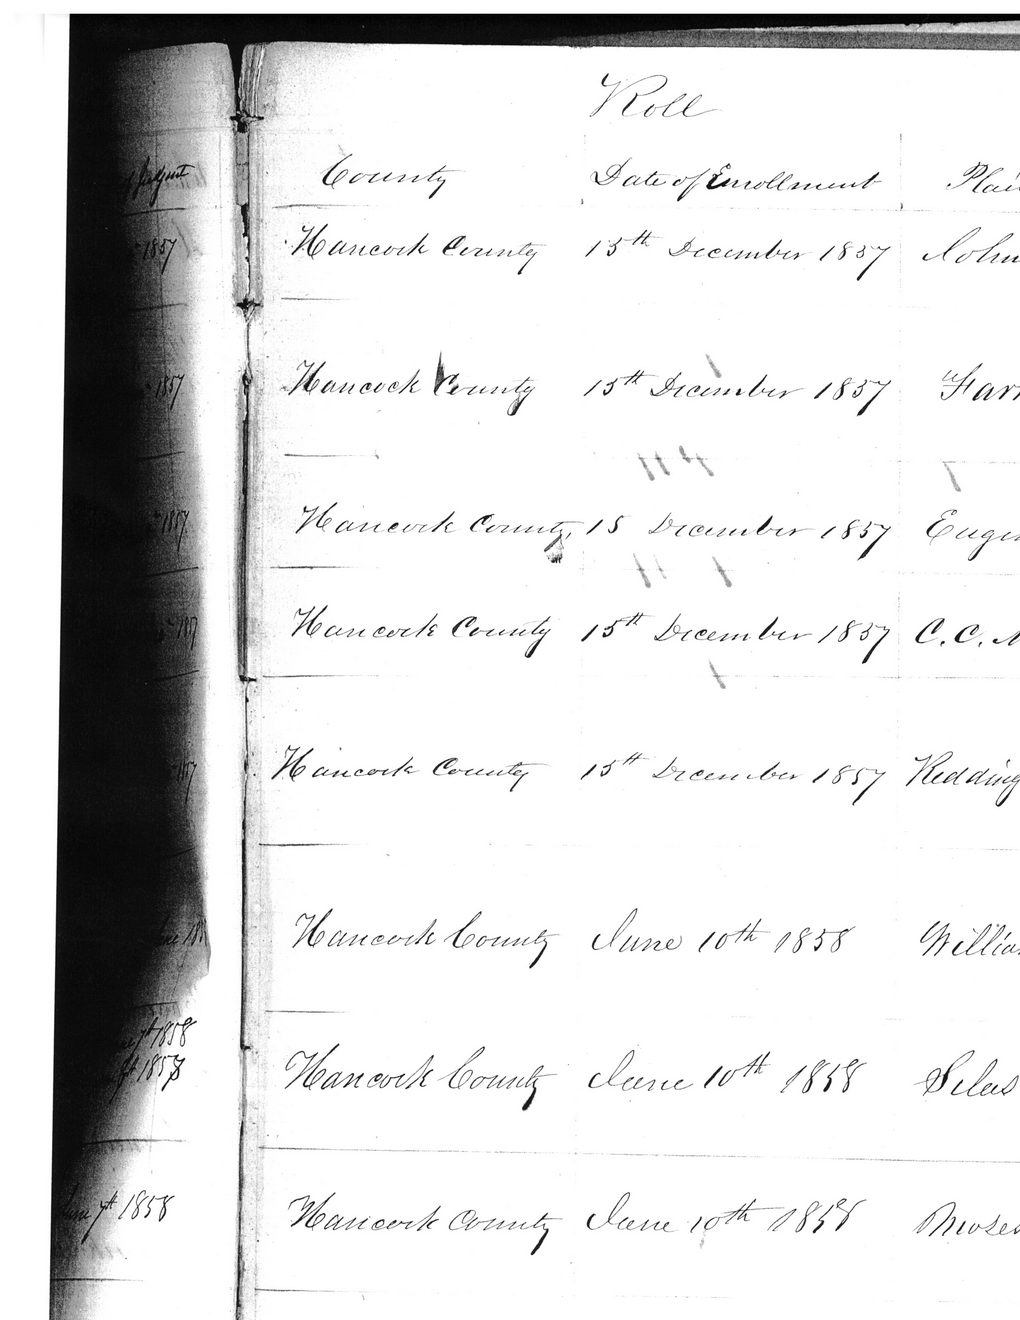 Roll
County Date of Enrollment
1857 Hancock County 15th December 1857 John
1857 Hancock County 15th December 1857
1857 Hancock County, 15 December 1857
Hancock County 15th December 1857 C. C.
1857 Hancock County 15th December 1857 Redding
Hancock County June 10th 1858
7th 1858
1858 Hancock County June 10th 1858 Silas
June 7th 1858 Hancock County June 10th 1858 Moses